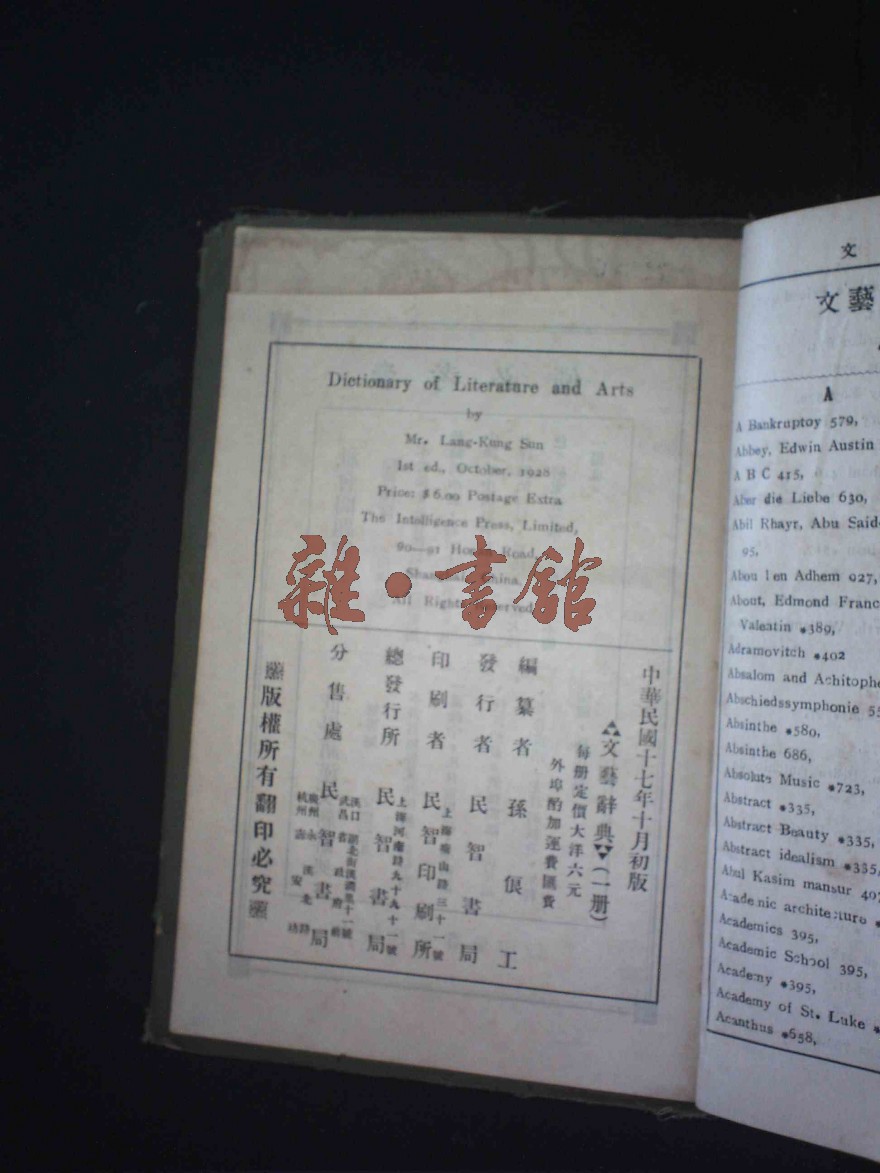 Dictionary of Literature and Arts
by
Mr. Lang-Kung Sun
1st ed., October, 1928
Price: $6.00 Postage Extra
The Intelligence Press, Limited,
90—91 Road,
China.
All Rights
雜·書館
中華民國十七年十月初版
文藝辭典(一册)
每册定價大洋六元
外埠酌加運費匯費
編纂者 孫俍工
發行者 民智書局
印刷者 民智印刷所
上海 山路三十一號
總發行所 民智書局
上海河南路九十九十一號
分售處 民智書局
版權所有翻印必究
文
文藝
A
A Bankruptoy 579,
Abbey, Edwin Austin
A B C 415,
Aber die Liebe 630,
Abil Khayr, Abu Said-
95,
Abou Ben Adhem 927,
About, Edmond Franc
Valeatin *389,
Adramovitch *402
Absalom and Achitophe
Abschiedssymphonie 55
Absinthe *580,
Absinthe 686,
Absolute Music *723,
Abstract *335,
Abstract Beauty *335,
Abstract idealism *335,
Abul Kasim mansur 407
Academic architecture *
Academics 395,
Academic School 395,
Academy *395,
Academy of St. Luke *
Acanthus *658,